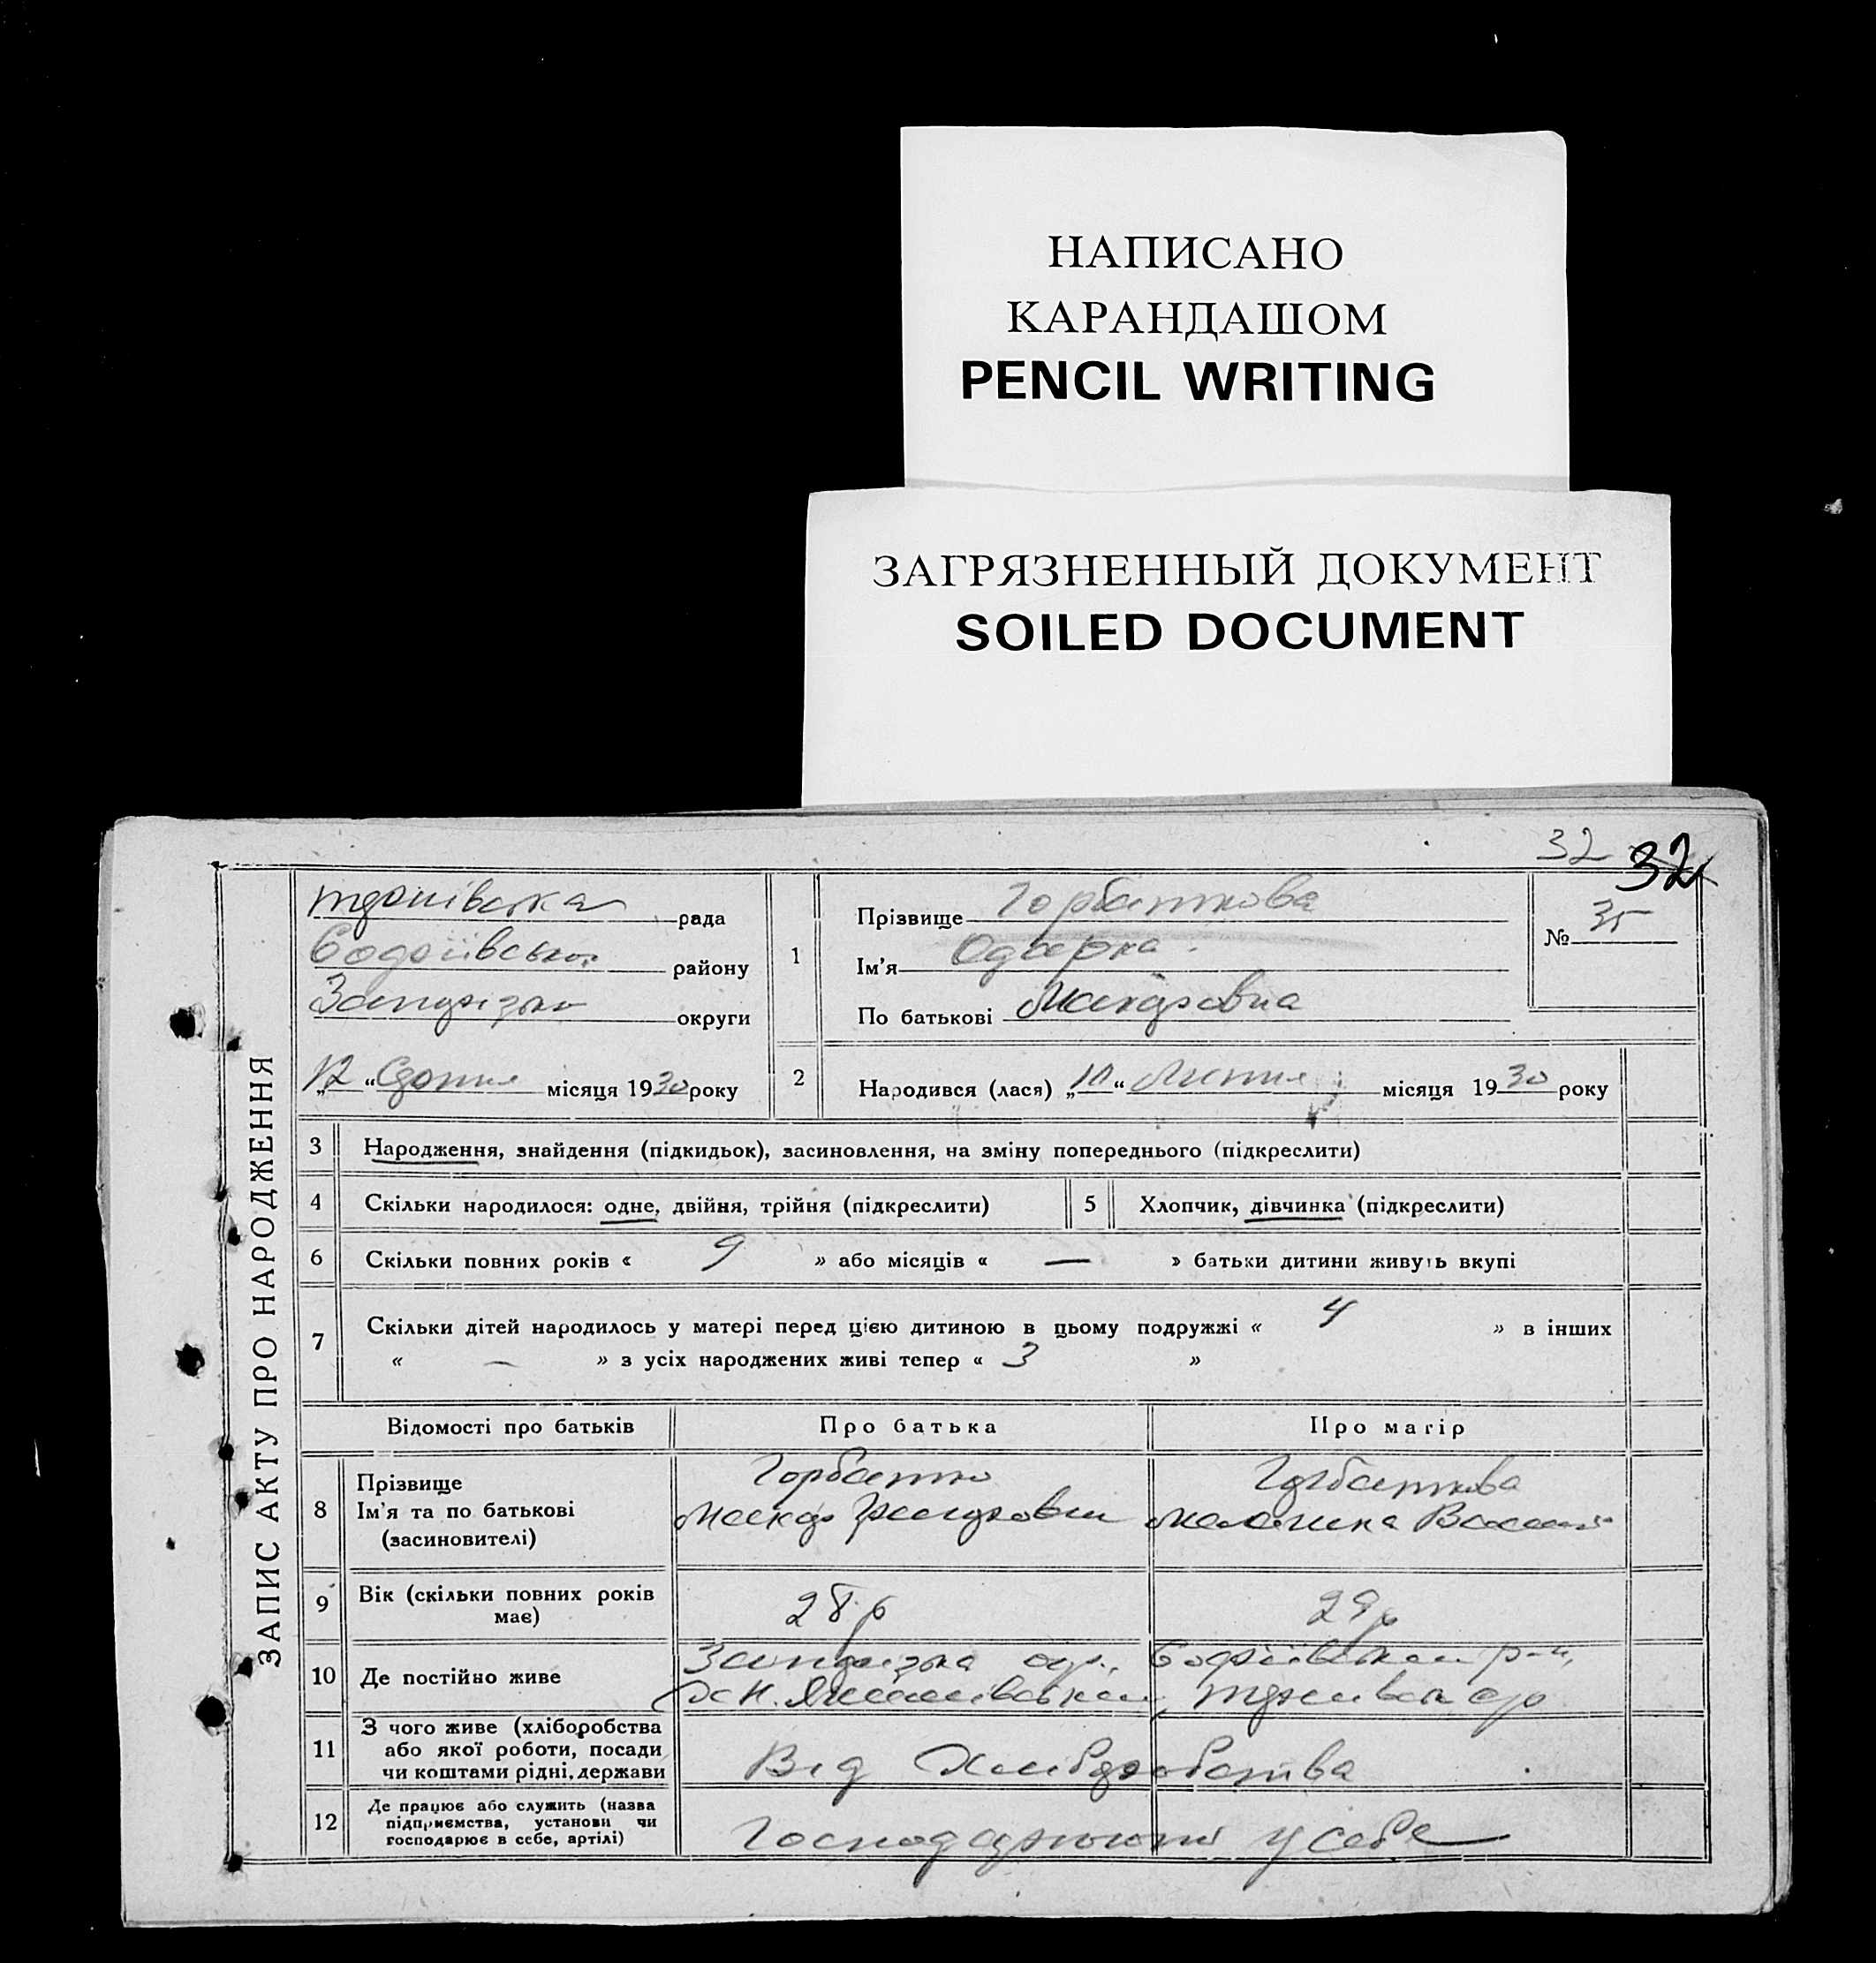 НАПИСАНО
КАРАНДАШОМ
PENCIL WRITING
ЗАГРЯЗНЕННЫЙ ДОКУМЕНТ
SOILED DOCUMENT
32 32
ЗАПИС АКТУ ПРО НАРОДЖЕННЯ
рада
району
округи
„12“ місяця 1930 року
1
Прізвище Горбаткова
Ім'я Одарка
По батькові Макаровна
№ 35
2
Народився (лася) „10“ Липня місяця 1930 року
3 Народження, знайдення (підкидьок), засиновлення, на зміну попереднього (підкреслити)
4 Скільки народилося: одне, двійня, трійня (підкреслити)
5 Хлопчик, дівчинка (підкреслити)
6 Скільки повних років « 9 » або місяців « — » батьки дитини живуть вкупі
7 Скільки дітей народилось у матері перед цією дитиною в цьому подружжі « 4 » в інших
« — » з усіх народжених живі тепер « 3 »
Відомості про батьків Про батька Про матір
8 Прізвище Горбатко Горбаткова
Ім'я та по батькові Макар
(засиновителі)
9 Вік (скільки повних років 28 р 29 р
має)
10 Де постійно живе
11 З чого живе (хліборобства
або якої роботи, посади
чи коштами рідні, держави
Від Хліборобства
12 Де працює або служить (назва
підприємства, установи чи
господарює в себе, артілі)
Господарюють у себе